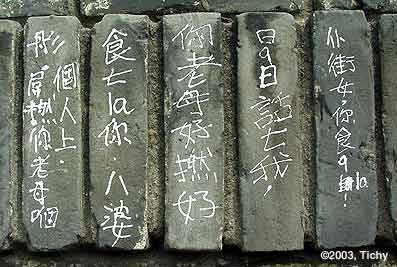 仆街女,你食9la!
日9日話七我!
老母好撚好
食七la你.八婆
個人上.
彤,屌撚你老母個
©2003, Tichy